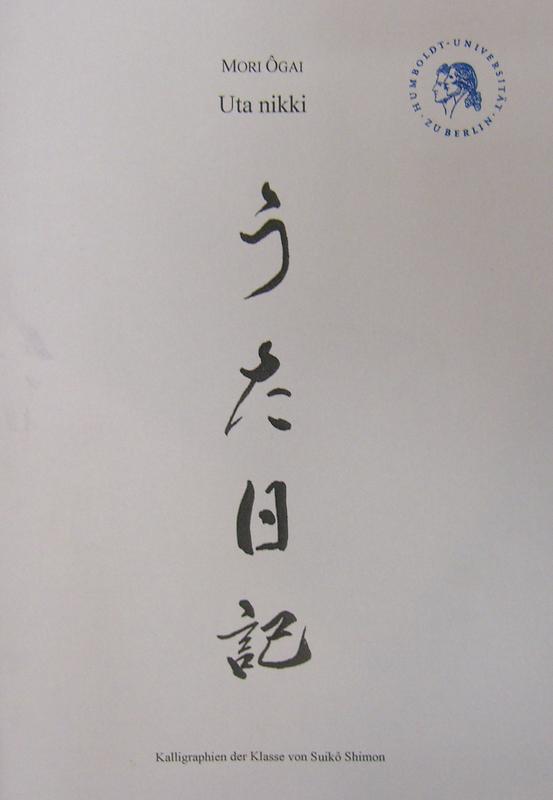 MORI ÔGAI
Uta nikki
HUMBOLDT-UNIVERSITÄT
ZU BERLIN
うた日記
Kalligraphien der Klasse von Suikô Shimon